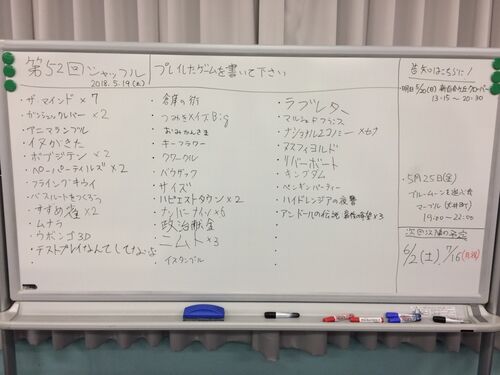 第52回シャッフル
2018.5.19(土)
プレイしたゲームを書いて下さい
・ザ マインド × 7
・ガンジョンクレバー × 2
・アニマランブル
・イヌがきた
・ボブジテン × 2
・ペーパーテイルズ × 2
・フライングキウイ
・バスルートをつくろう
・すずめ雀 × 2
・ムナラ
・ウボンゴ3D
・テストプレイなんてしてないよ
・
・倉庫の術
・つみきメイズBig
・おみかんさま
・キーフラワー
・クワークル
・バウザック
・サイズ
・ハピエストタウン × 2
・ナンバーナイン × 6
・政治献金
・ニムト × 3
・イスタンブル
・ラブレター
・マルシェドフランス
・ナショナルエコノミー ×セカ
・ヌスフィヨルド
・リバーボート
・キングダム
・ペンギンパーティー
・ハイドレンジアの夜警
・アンドールの伝説 最後の希望 × 3
・
・
・
告知はこちらに!
・明日 5/20(日) 新百合ヶ丘クローバー
13:15 ～ 20:30
・5月25日(金)
ブルームーンを遊ぶ会
マーブル(大井町)
19:00 ～ 22:00
次回以降の予定
6/2(土)、7/16(月・祝)